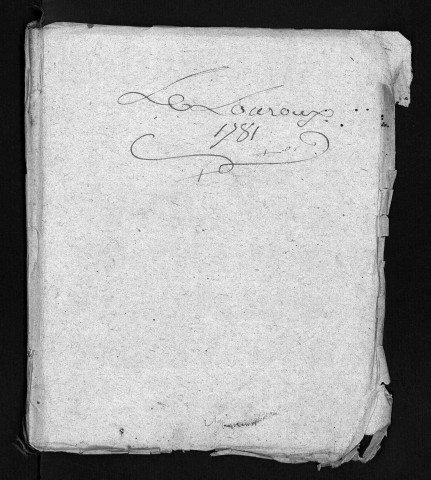 Le Louroux
1781